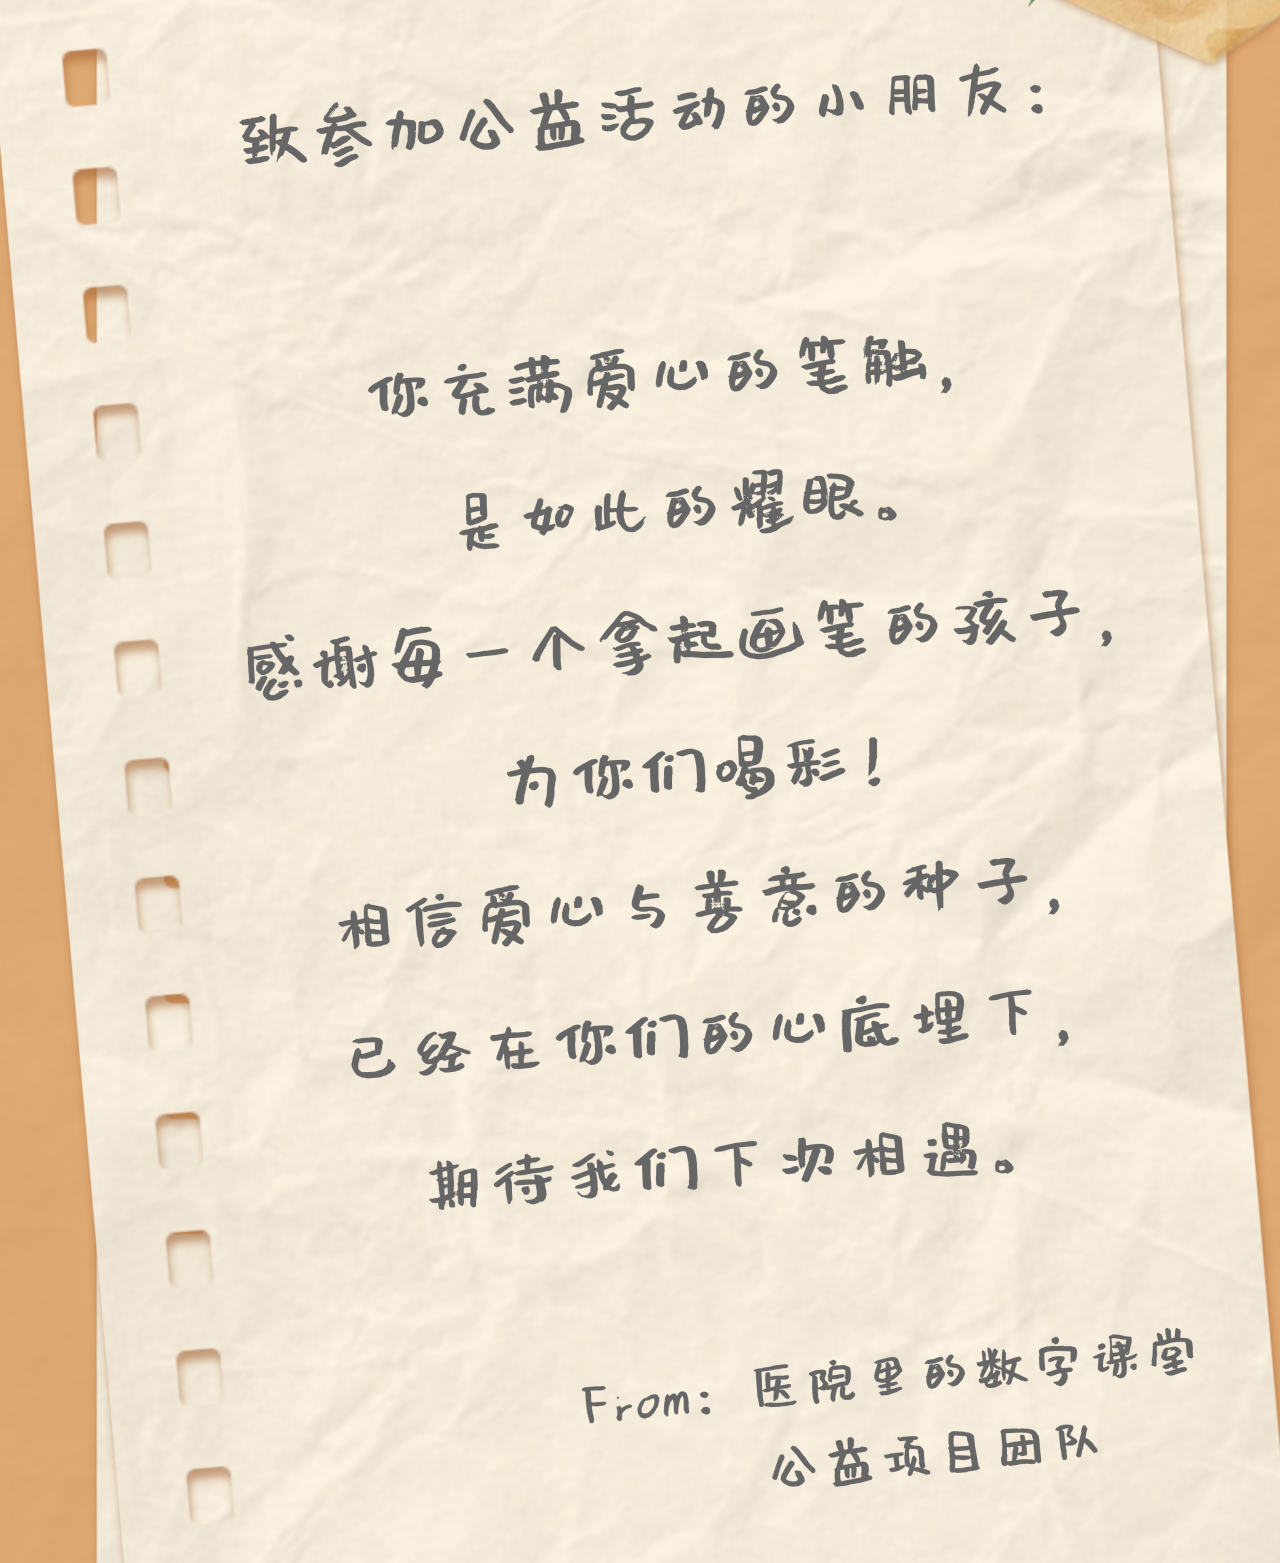 致参加公益活动的小朋友：
你充满爱心的笔触，
是如此的耀眼。
感谢每一个拿起画笔的孩子，
为你们喝彩！
相信爱心与善意的种子，
已经在你们的心底埋下，
期待我们下次相遇。
From：医院里的数字课堂
公益项目团队